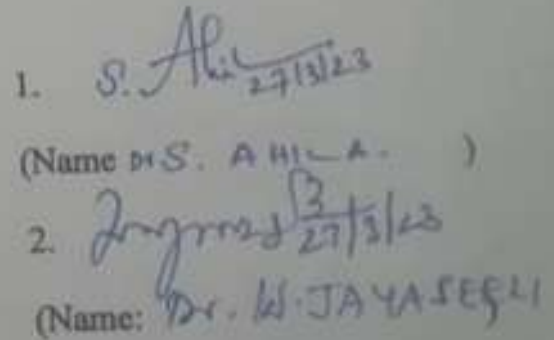 1. S. Ahil 27/3/23
(Name Dr S. AHILA. )
2. 27/3/23
(Name: Dr. W. JAYASEELI